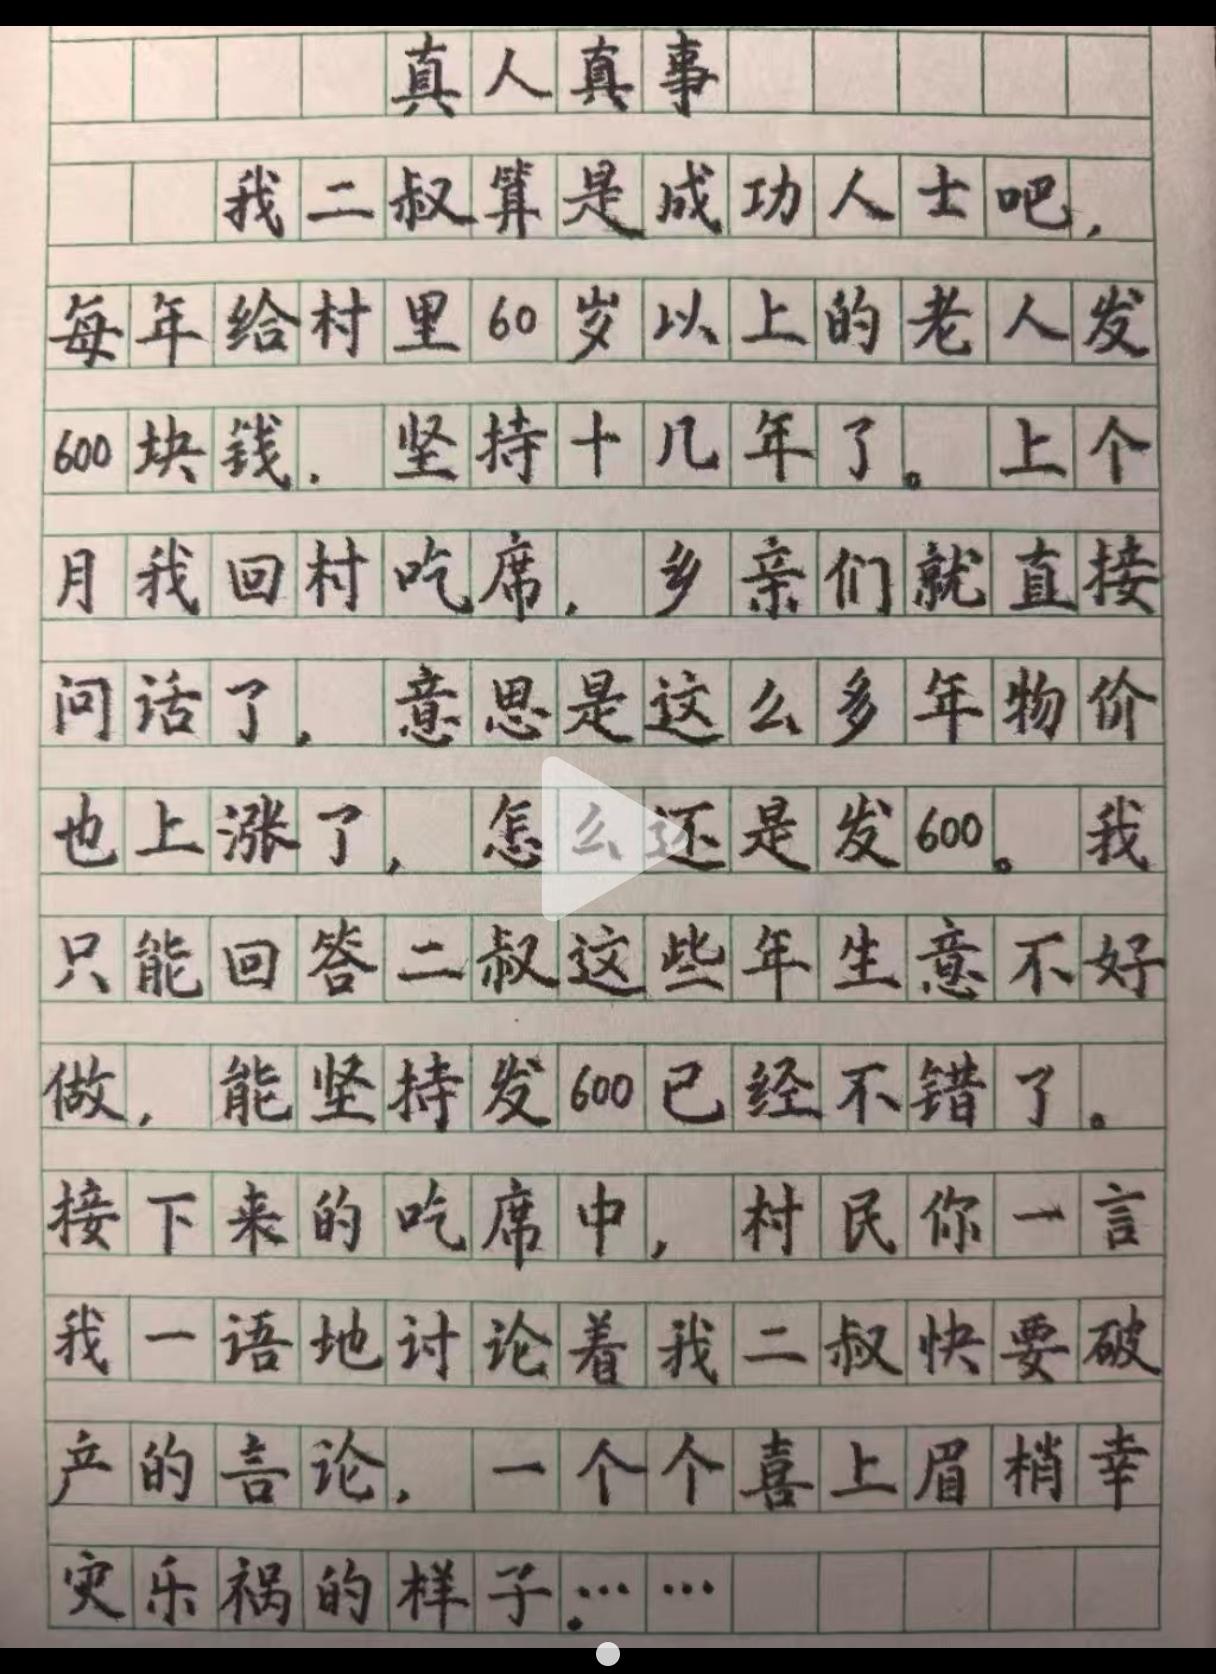 真人真事
我二叔算是成功人士吧，
每年给村里60岁以上的老人发
600块钱，坚持十几年了。上个
月我回村吃席，乡亲们就直接
问话了，意思是这么多年物价
也上涨了，怎么还是发600。我
只能回答二叔这些年生意不好
做，能坚持发600已经不错了。
接下来的吃席中，村民你一言
我一语地讨论着我二叔快要破
产的言论，一个个喜上眉梢幸
灾乐祸的样子。……